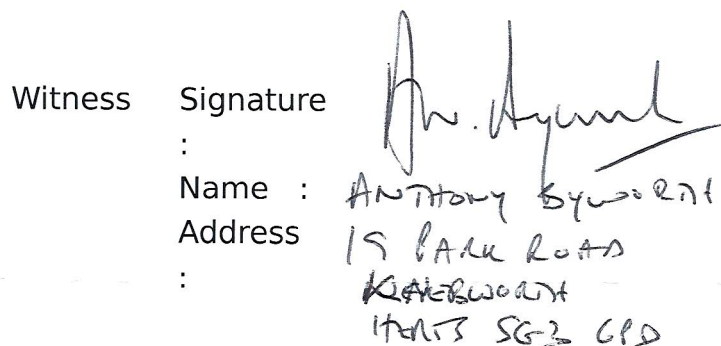 Witness Signature
:
Name : ANTHONY BYWORTH
Address 19 PARK ROAD
: KNEBWORTH
HERTS SG3 6PD